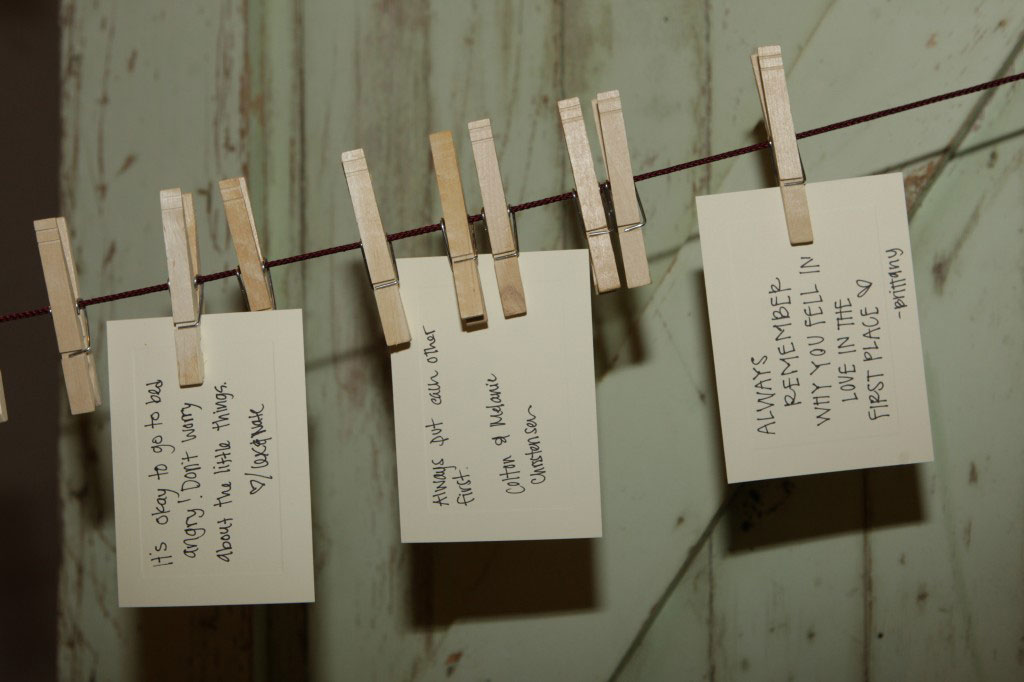 It's okay to go to bed
angry! Don't worry
about the little things.
Always put each other
first.
Colton & Melanie
Christensen
ALWAYS
REMEMBER
WHY YOU FELL IN
LOVE IN THE
FIRST PLACE ♡
-brittany